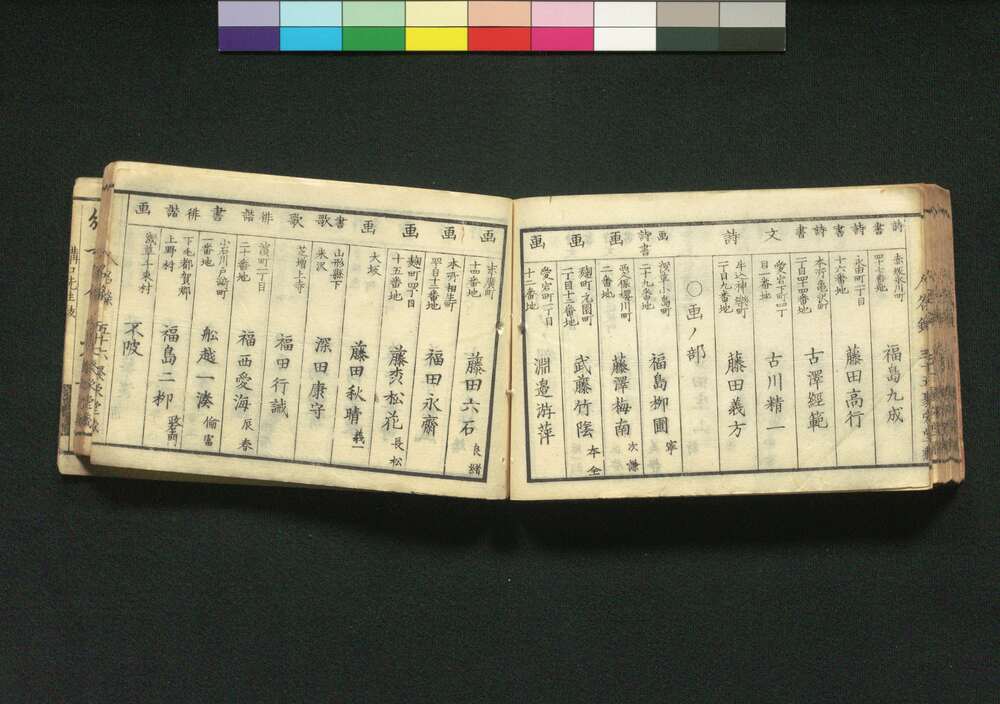 詩書
赤坂氷川町
四十七番地
福島九成
詩書
永田町二丁目
十六番地
藤田高行
詩書
本所亀沢町
二百四十四番地
古澤經範
文
愛宕下町四丁
目一番地
古川精一
詩
牛込神樂町
二百九番地
藤田義方
〇画ノ部
画詩書
淺草小島町
二十九番地
福島柳圃 寧
画
二番地
藤澤梅南 次謙
画
麹町元園町
二百十二番地
武藤竹陰 本全
画
愛宕町一丁目
十二番地
淵邉游萍
画
末廣町
十四番地
藤田六石 良緒
画
本所相生町
福田永齋
画
麹町四丁目
十五番地
松花 長松
画
大坂
藤田秋晴 義一
書歌
山形縣下
米沢
深田康守
歌
芝増上寺
福田行誠
俳諧
濱町二丁目
二十番地
福西愛海 辰春
書
小石川戸崎町
番地
舩越一湊 倫富
俳諧
下毛都賀郷
上野村
福島二柳
画
淺草千束村
不陂